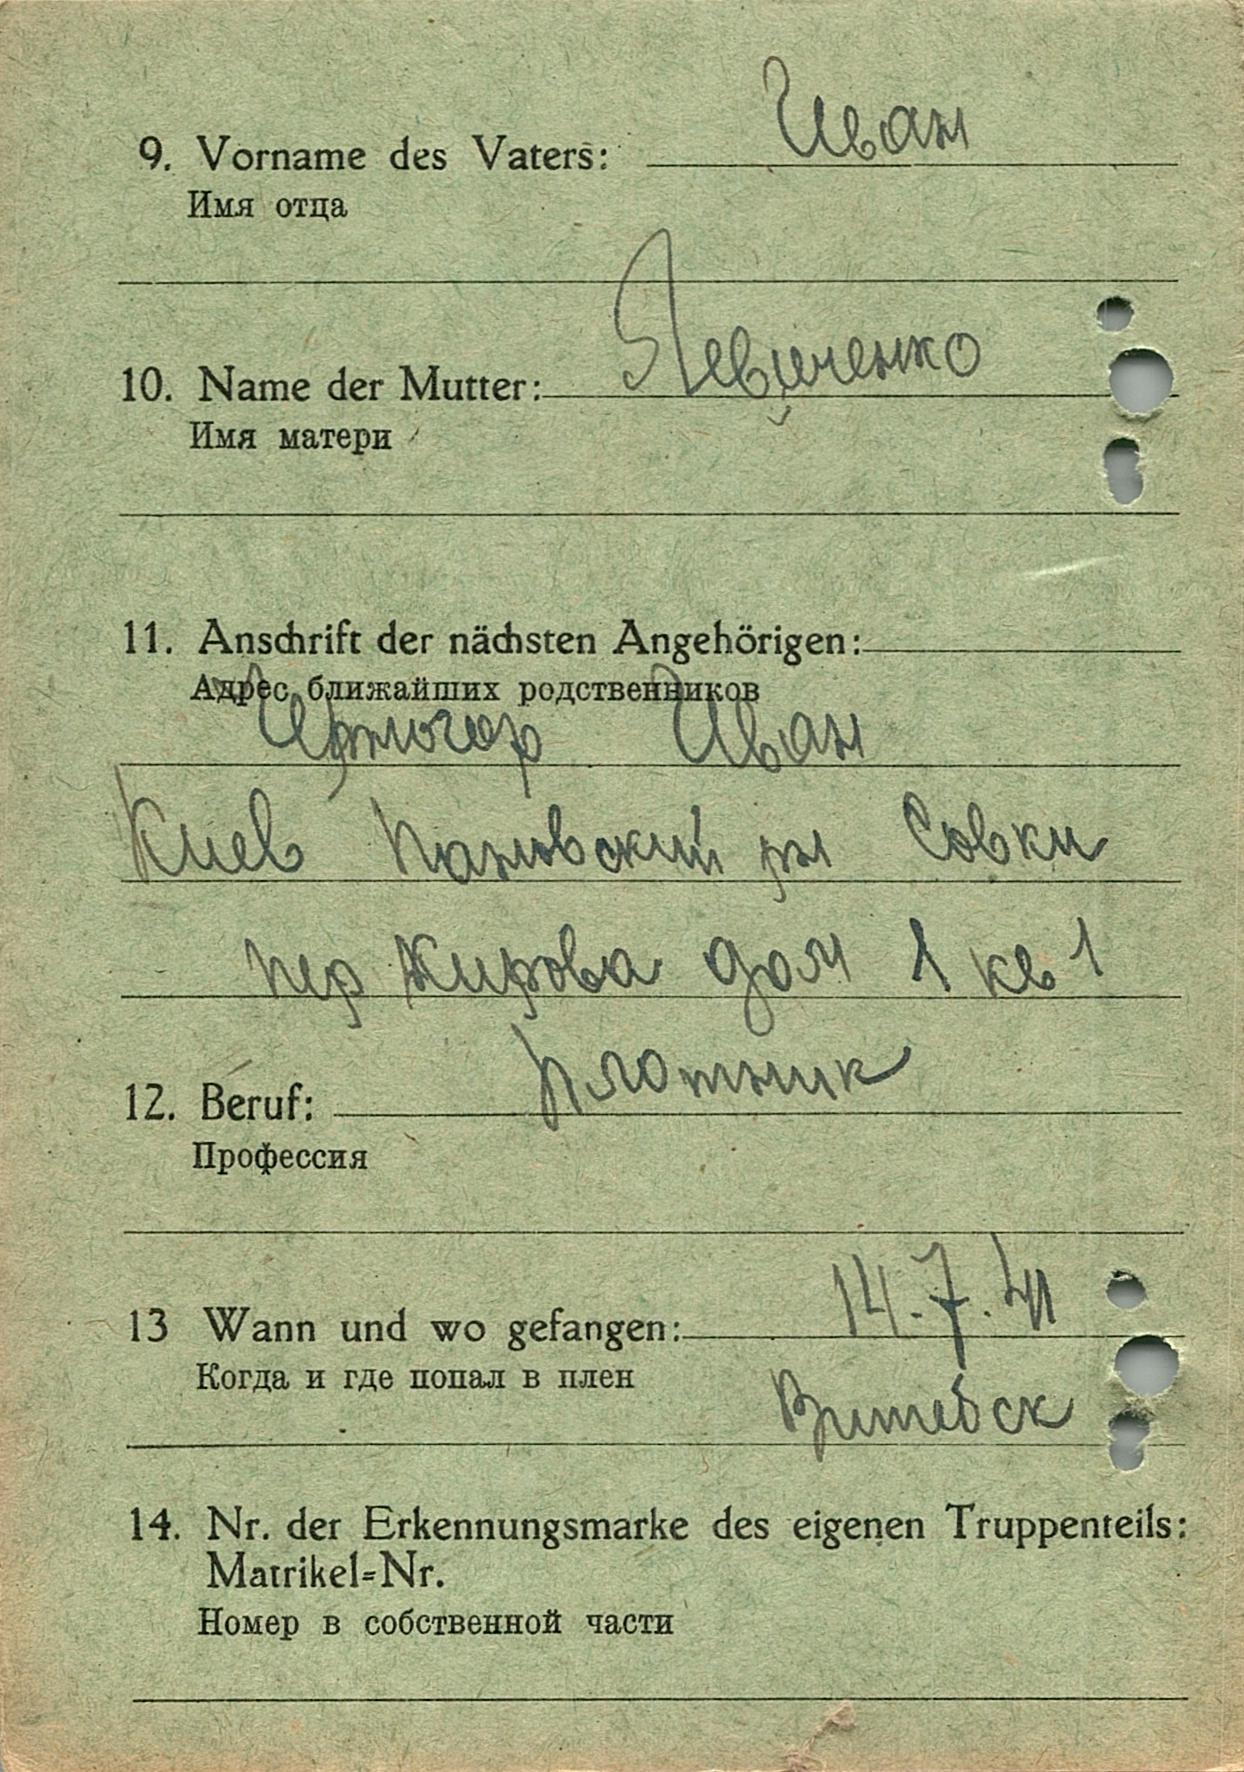 9. Vorname des Vaters: Иван
Имя отца
10. Name der Mutter:
Имя матери
11. Anschrift der nächsten Angehörigen:
Адрес ближайших родственников
Иван
Киев Совки
пер Кирова дом 1 кв 1
12. Beruf: плотник
Профессия
13 Wann und wo gefangen: 14.7.41
Когда и где попал в плен
Витебск
14. Nr. der Erkennungsmarke des eigenen Truppenteils:
Matrikel-Nr.
Номер в собственной части